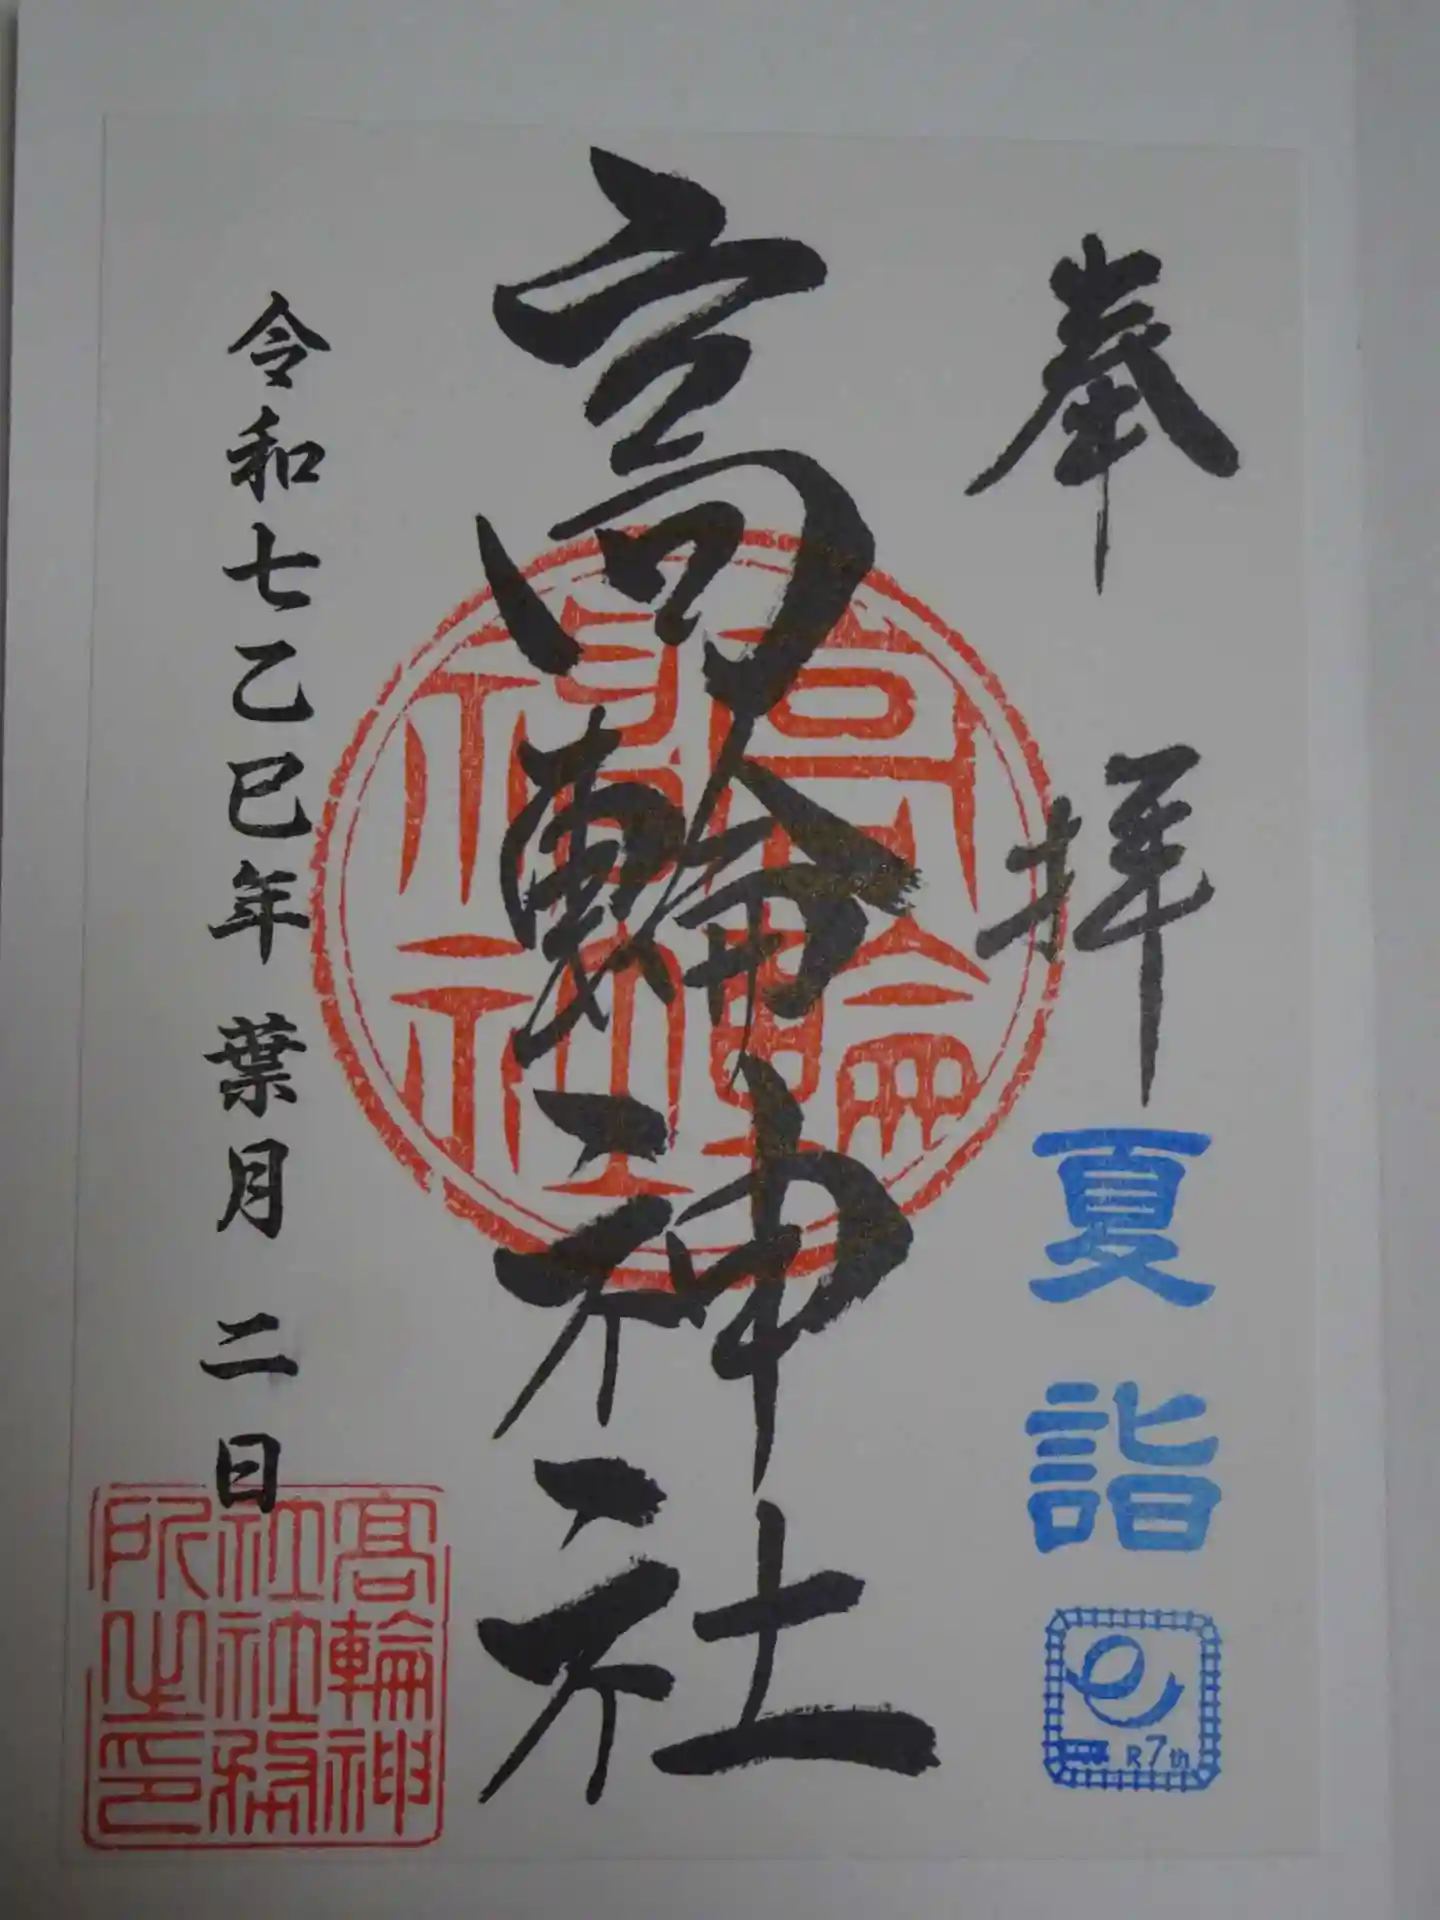 奉拝
夏詣
R7th
高輪神社
高輪神社
令和七乙巳年 葉月 二日
高輪神
社社務
所之印